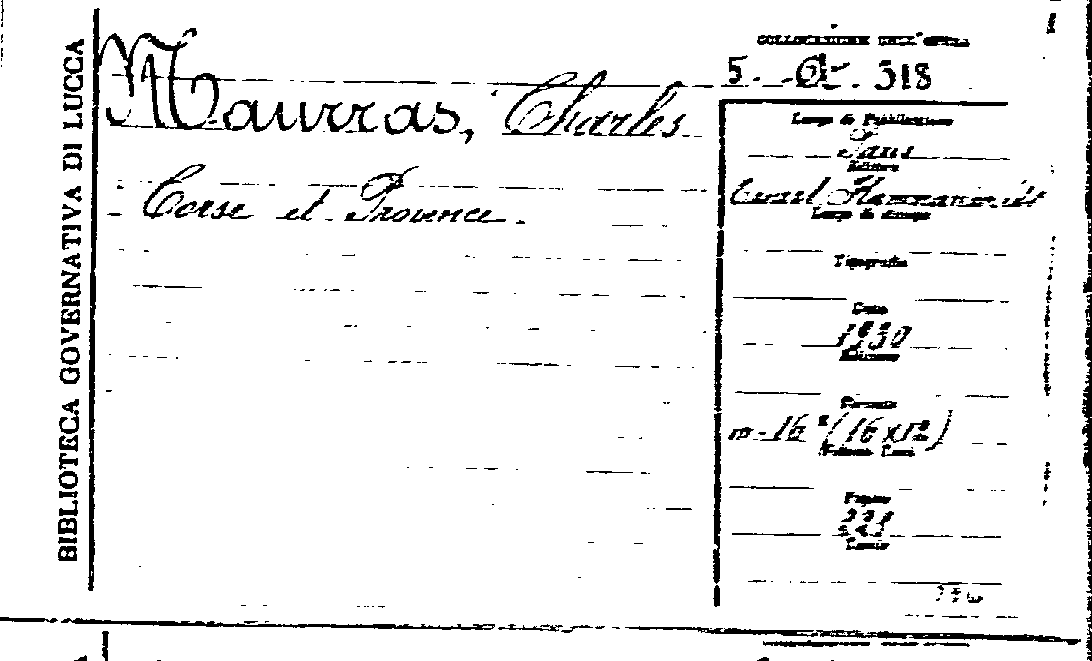 BIBLIOTECA GOVERNATIVA DI LUCCA
Maurras, Charles
Corse et Provence.
COLLOCAZIONE DELL'OPERA
5. 318
Luogo di Pubblicazione
Paris
Editore
Flammarion
Luogo di stampa
Tipografia
Data
1930
Edizione
Formato
in-16° (16x12)
Volume
Pagine
Tavole